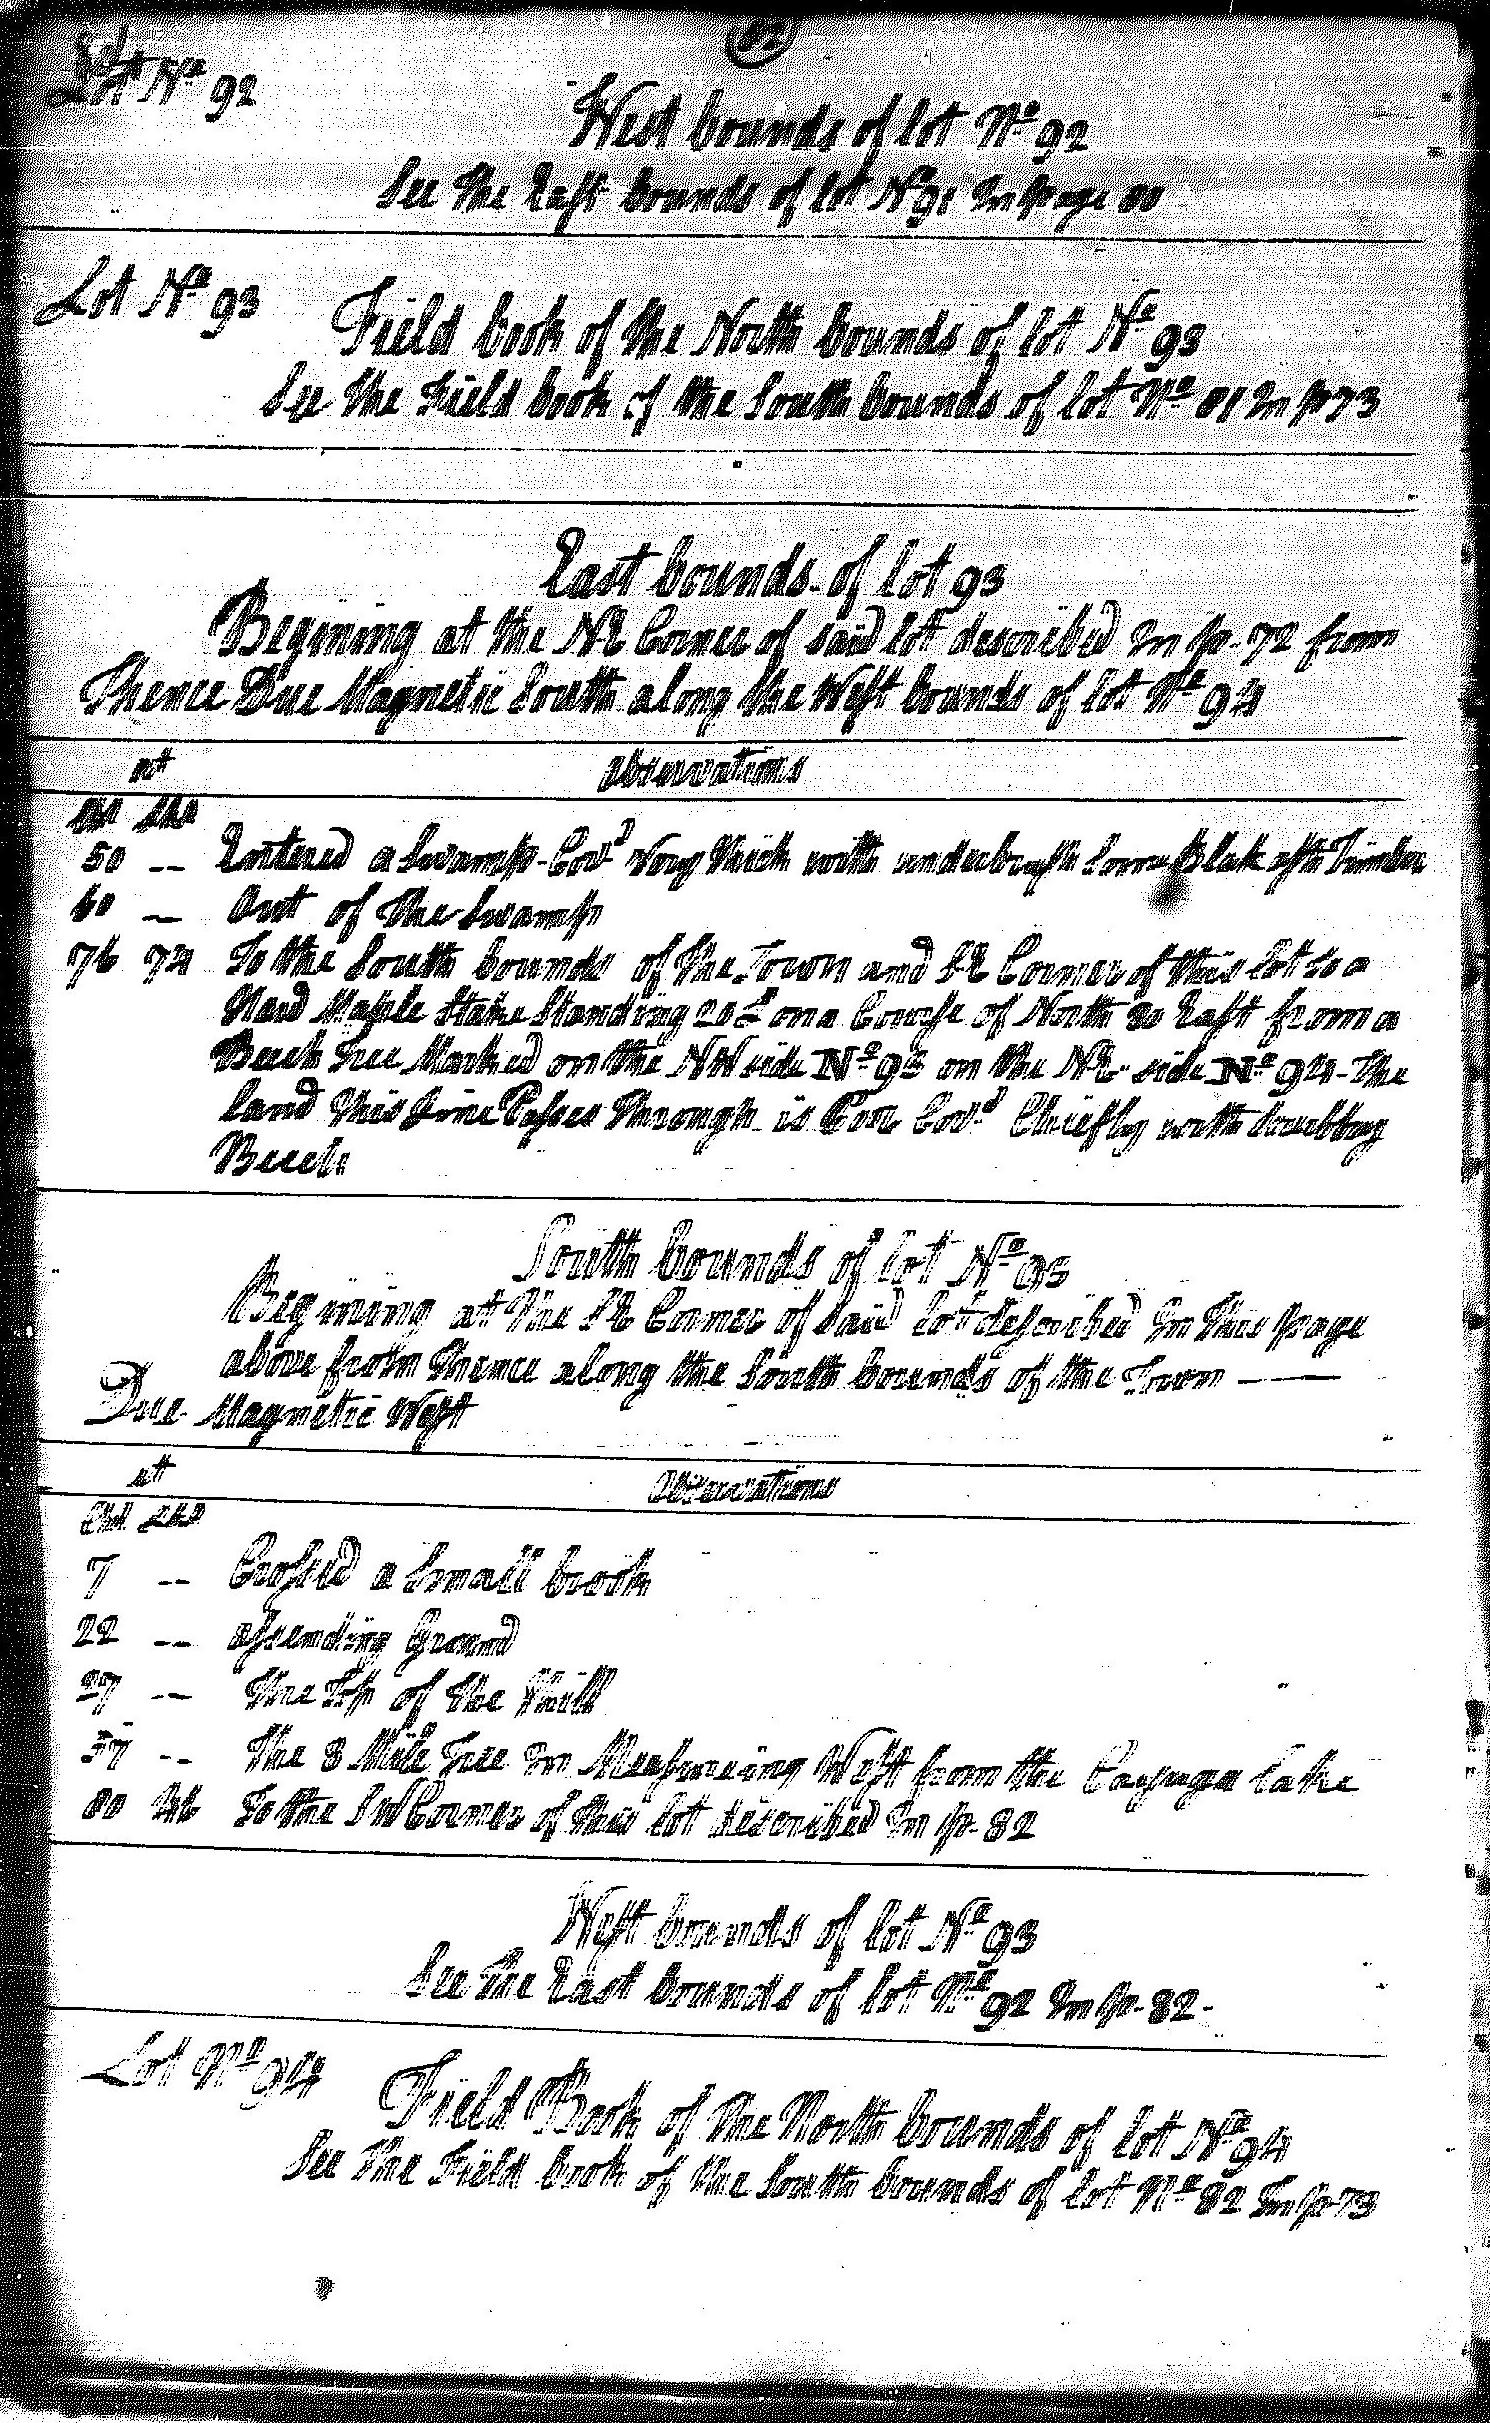 Lot No 92
West bounds of lot No 92
See the East bounds of lot No 91 In page 80
Lot No 93
Field book of the North bounds of lot No 93
See the Field book of the South bounds of lot No 81 In p 73
East bounds of lot 93
Begining at the NE Corner of said lot described In p. 72 from
Thence Due Magnetic South along the West bounds of lot No 94
at
observations
Chs Lks
50 -- Entered a Swamp Covd Very thick with underbrush Some Blak ash Timber
60 -- Out of the Swamp
76 74 To the South bounds of the Town and SE Corner of this lot to a
Hard Maple Stake Standing 20 L on a Course of North 80 East from a
Beech Tree Marked on the NW side No 93 on the NE side No 94 - the
land this Line Passes Through is Poor Covd Chiefly with Scrubbey
Beech
South bounds of lot No 93
Begining at the SE Corner of Said lot described In this page
above from thence along the South bounds of the Town
Due Magnetic West
at
Observations
Chs Lks
7 -- Crossed a Small brook
22 -- assending Ground
27 -- the Top of the Hill
37 -- The 8 Mile Tree In Measureing West from the Cayuga lake
80 46 To the SW Corner of this lot described In p. 82
West bounds of lot No 93
See the East bounds of lot No 92 In p. 82 -
Lot No 94
Field Book of the North bounds of lot No 94
See the Field book of the South bounds of lot No 82 In p 73